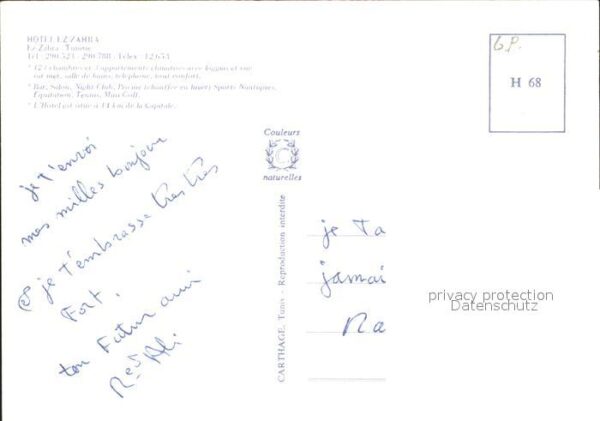 HOTEL EZ ZAHRA
Ez-Zahra - Tunisie
Tél : 290.523 - 290.788 - Télex : 12.653
* 127 chambres et appartements climatisés avec loggias et vue
sur mer, salle de bains, téléphone, tout confort.
* Bar, Salon, Night Club, Piscine (chauffée en hiver) Sports Nautiques,
Equitation, Tennis, Mini Golf.
* L'Hotel est situé à 14 km de la Capitale.
G.P.
H 68
Couleurs
naturelles
je t'envoi
mes milles bonjour
et je t'embrasse tres tres
Fort.
ton Futur ami
Ali
CARTHAGE, Tunis - Reproduction interdite
je Ta
jamai
Ra
privacy protection
Datenschutz